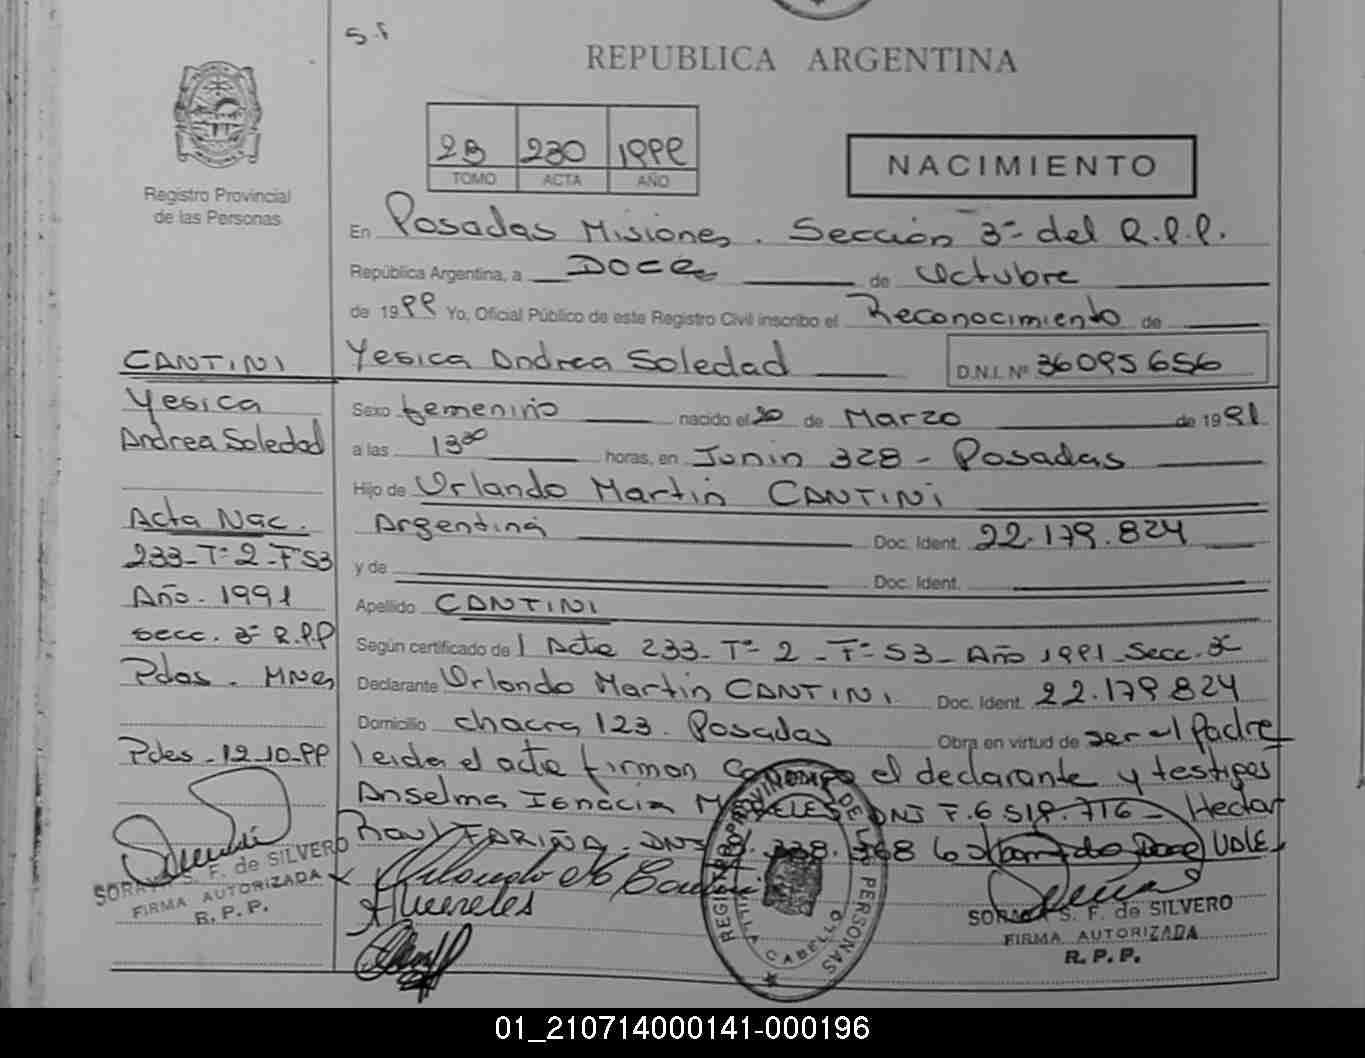 S.F
REPUBLICA ARGENTINA
Registro Provincial
de las Personas
2B 230 1999
TOMO ACTA AÑO
NACIMIENTO
En Posadas Misiones. Sección 3ª del R.P.P.
República Argentina, a Doce de Octubre
de 1999 Yo, Oficial Público de este Registro Civil inscribo el Reconocimiento de
Yesica Andrea Soledad D.N.I. Nº 36095656
CANTINI
Yesica
Andrea Soledad
Acta Nac.
233-Tº2-Fº53
Año-1991
secc. 3ª R.P.P
Pdas. Mnes
Pdas-12-10-99
Sexo femenino nacido el 20 de Marzo de 1991
a las 13:30 horas, en Junin 328 - Posadas
Hijo de Orlando Martin CANTINI
Argentina Doc. Ident. 22.179.824
y de Doc. Ident.
Apellido CANTINI
Según certificado de Acta 233-Tº 2-Fº 53-Año 1991-Secc. 3ª
Declarante Orlando Martin CANTINI Doc. Ident. 22.179.824
Domicilio chacra 123. Posadas Obra en virtud de ser el Padre
leida el acta firman el declarante y testigos
Anselma Ignacia DNI F.6.519.716 - Hector
Raul FARIÑA. DNI .338.
SORAYA S. F. de SILVERO
FIRMA AUTORIZADA
R. P. P.
REGISTRO PROVINCIAL DE LAS PERSONAS
VILLA CABELLO
SORAYA S. F. de SILVERO
FIRMA AUTORIZADA
R. P. P.
01_210714000141-000196